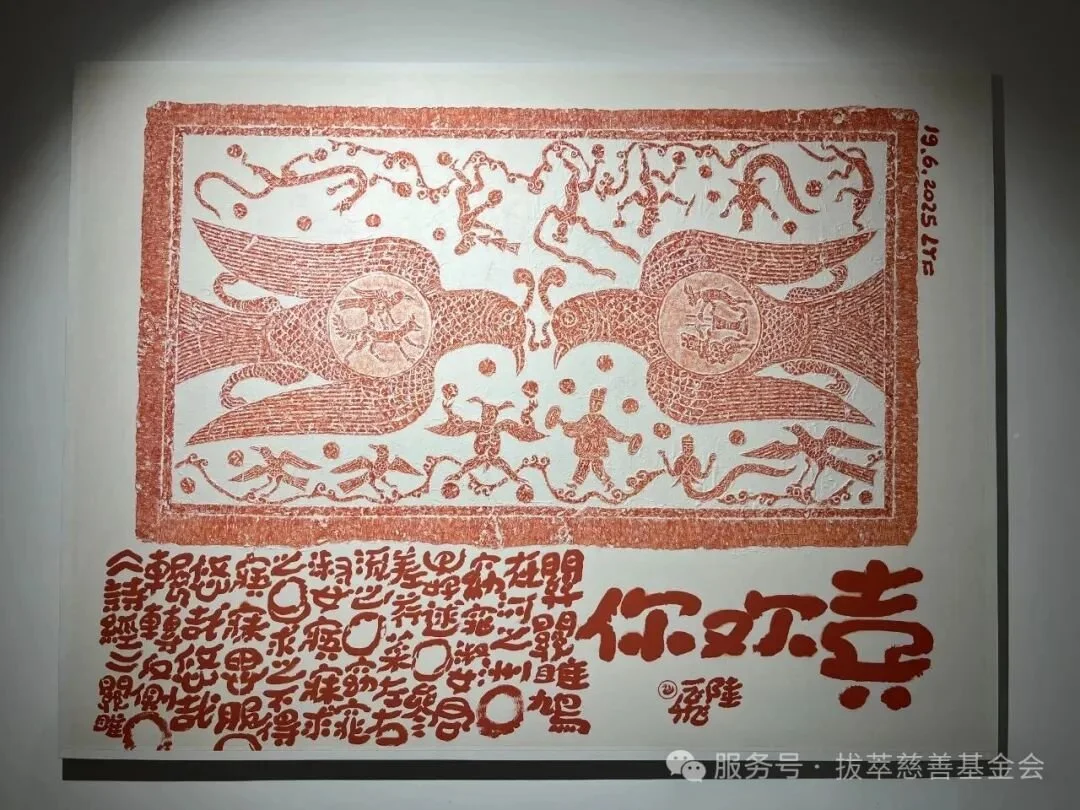 19.6.2025 LYC
喜欢你
陸
關關雎鳩
在河之洲○
窈窕淑女君
子好逑○參
差荇菜左右
流之○窈窕
淑女寤寐求
之○求之不得
寤寐思服○
悠哉悠哉
輾轉反側○
《詩經》關雎
服务号·拔萃慈善基金会